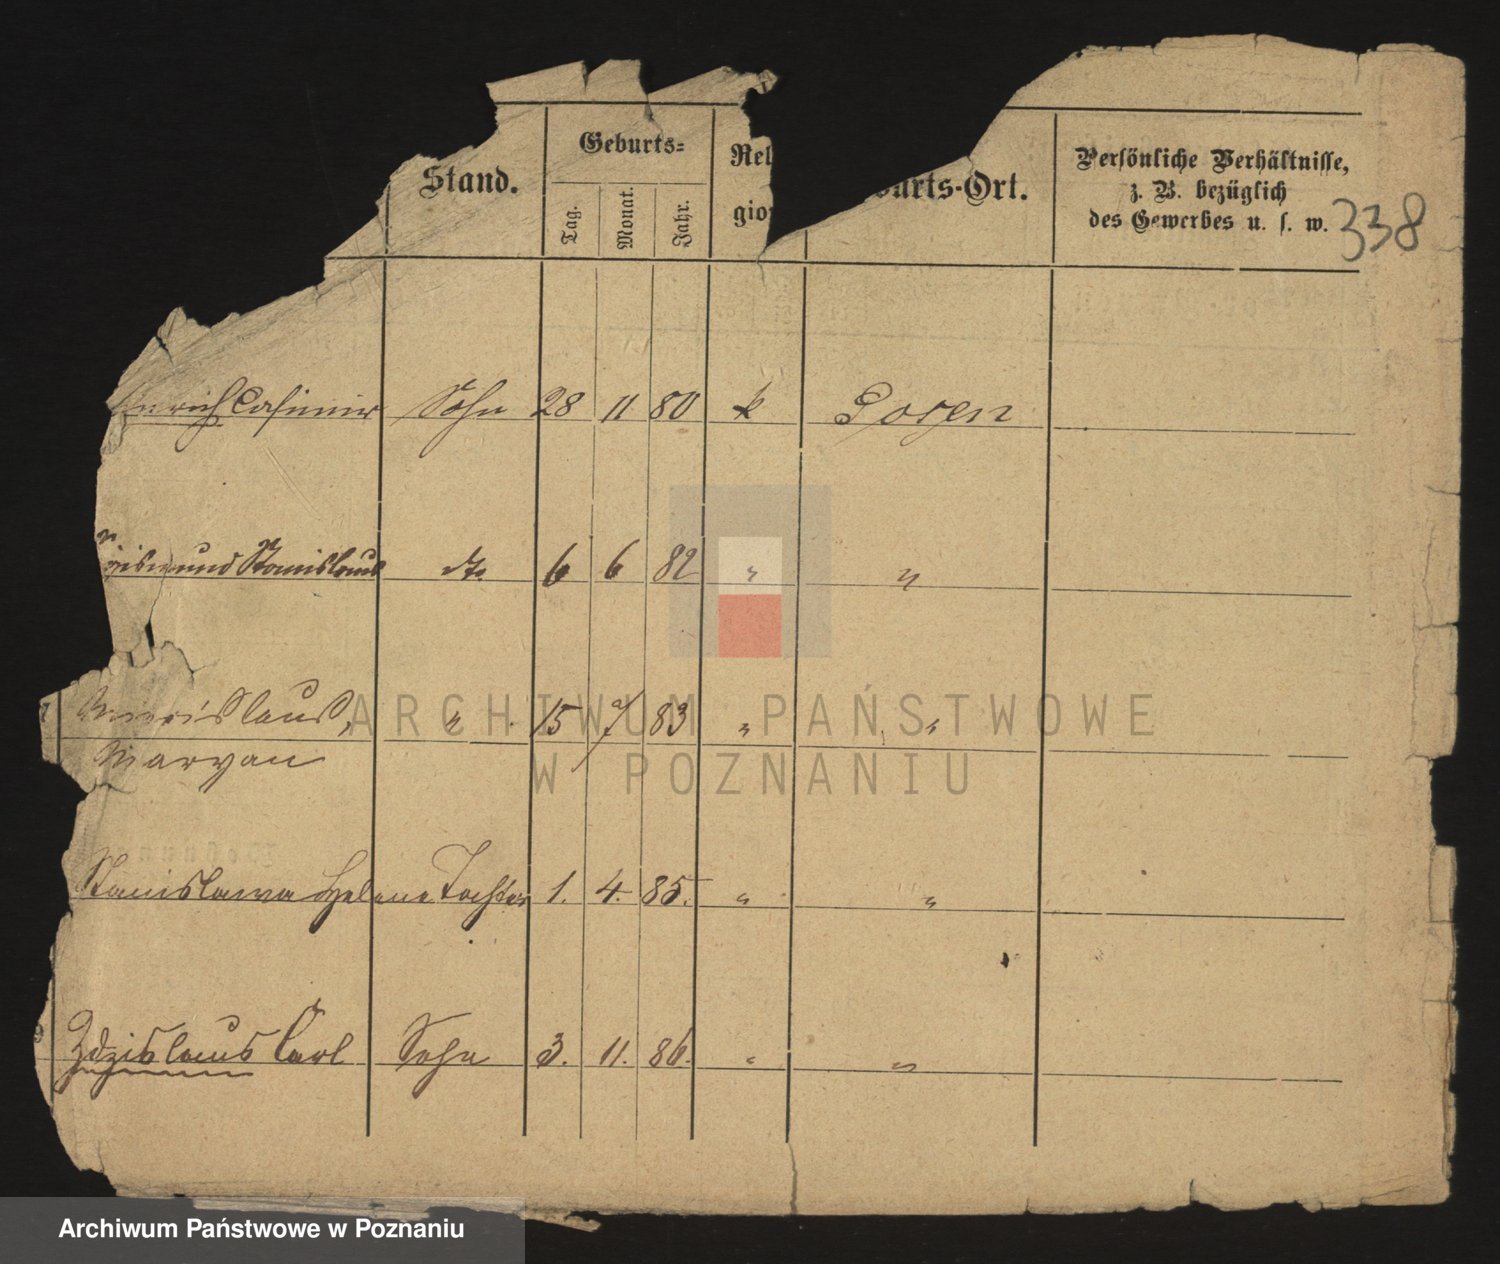 Stand.
Geburts-
Tag.
Monat.
Jahr.
Rel
gio
urts-Ort.
Persönliche Verhältnisse,
z. B. bezüglich
des Gewerbes u. s. w.
338
nrich Casimir Sohn 28 11 80 k Posen
gismund Stanislaus dto 6 6 82 " "
Mieczislaus, " 15 7 83 " "
Maryan
Stanislawa Helene Tochter 1. 4. 85. " "
9 Zdzislaus Carl Sohn 3. 11. 86. " "
ARCHIWUM PAŃSTWOWE
W POZNANIU
Archiwum Państwowe w Poznaniu